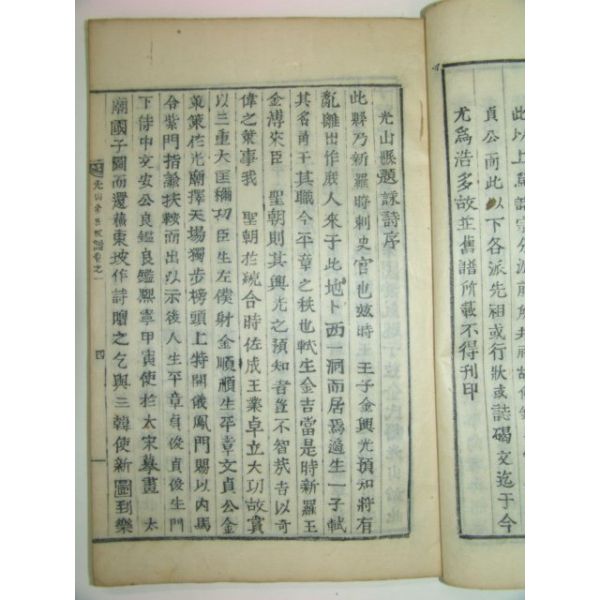 此以上爲
貞公而此以下各派先祖或行狀或誌碣文迄于今
尤爲浩多故並舊譜所載不得刊印
光山縣題詠詩序
此縣乃新羅時刺史官也玆時王子金興光預知將有
亂離出作庶人來于此地卜西一洞而居焉適生一子軾
其名甫王其職今平章之秩也軾生金吉當是時新羅王
金溥來臣 聖朝則其興光之預知者豈不智哉吉以奇
偉之策事我 聖朝於統合時佐成王業卓立大功故賞
以三重大匡彌功臣生左僕射金順順生平章文貞公金
策策佐光廟擇天場獨步榜頭上特開儀鳳門賜以內馬
令紫門指諭扶鞍而出以示後人生平章貞俊貞俊生門
下侍中文安公良鑑良鑑熙寧甲寅使於太宋摹畫 太
廟國子圖而還蘇東坡作詩贈之乞與三韓使新圖到樂
光山金氏族譜卷之一 四